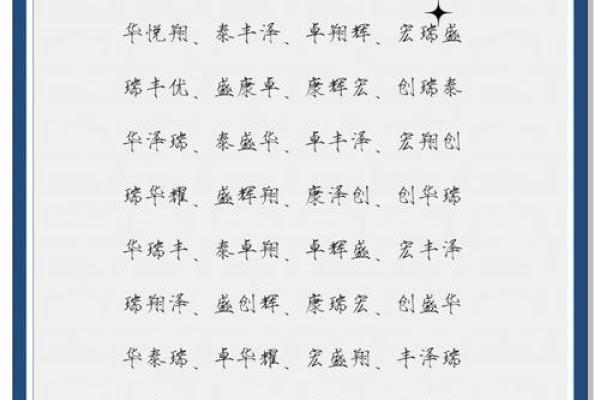 华悦翔、泰丰泽、卓翔辉、宏瑞盛
瑞丰优、盛康卓、康辉宏、创瑞泰
华泽瑞、泰盛华、卓丰泽、宏翔创
瑞华耀、盛辉翔、康泽创、创华瑞
华瑞丰、泰卓翔、卓辉盛、宏丰泽
瑞翔泽、盛创辉、康瑞宏、创盛华
华泰瑞、卓华耀、宏盛翔、丰泽瑞